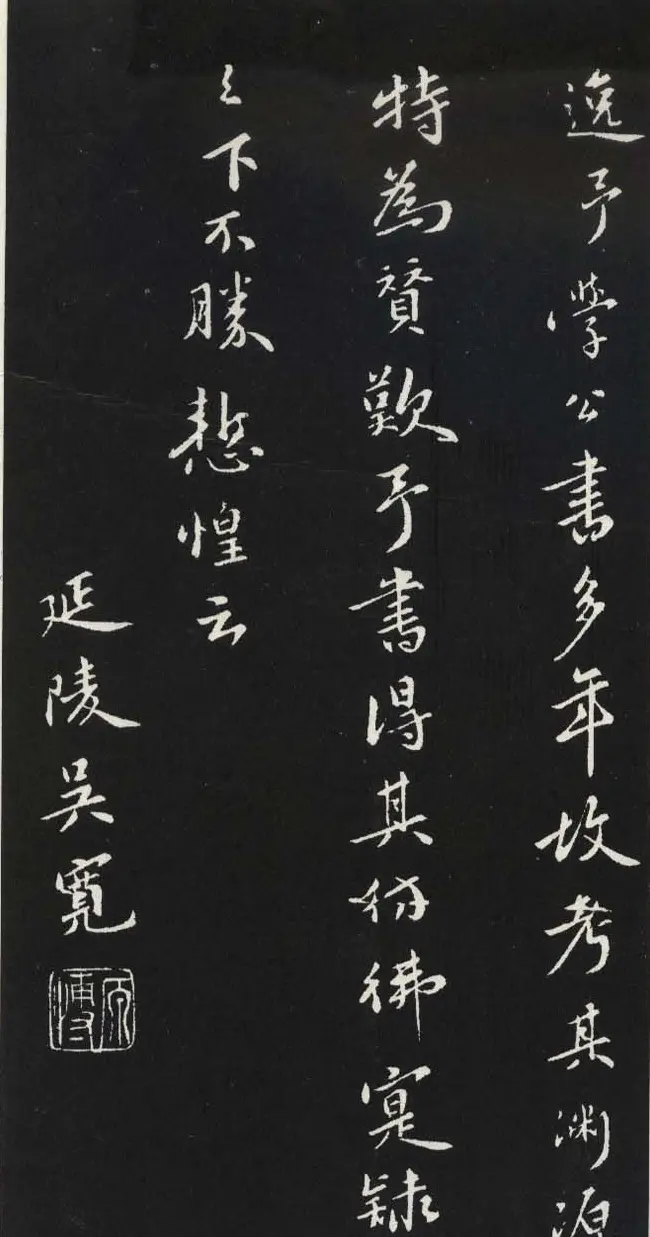 逸予學公書多年故考其渊源
特為賛歎予書得其彷彿寔録
之下不勝慙惶云
延陵吳寬
原博